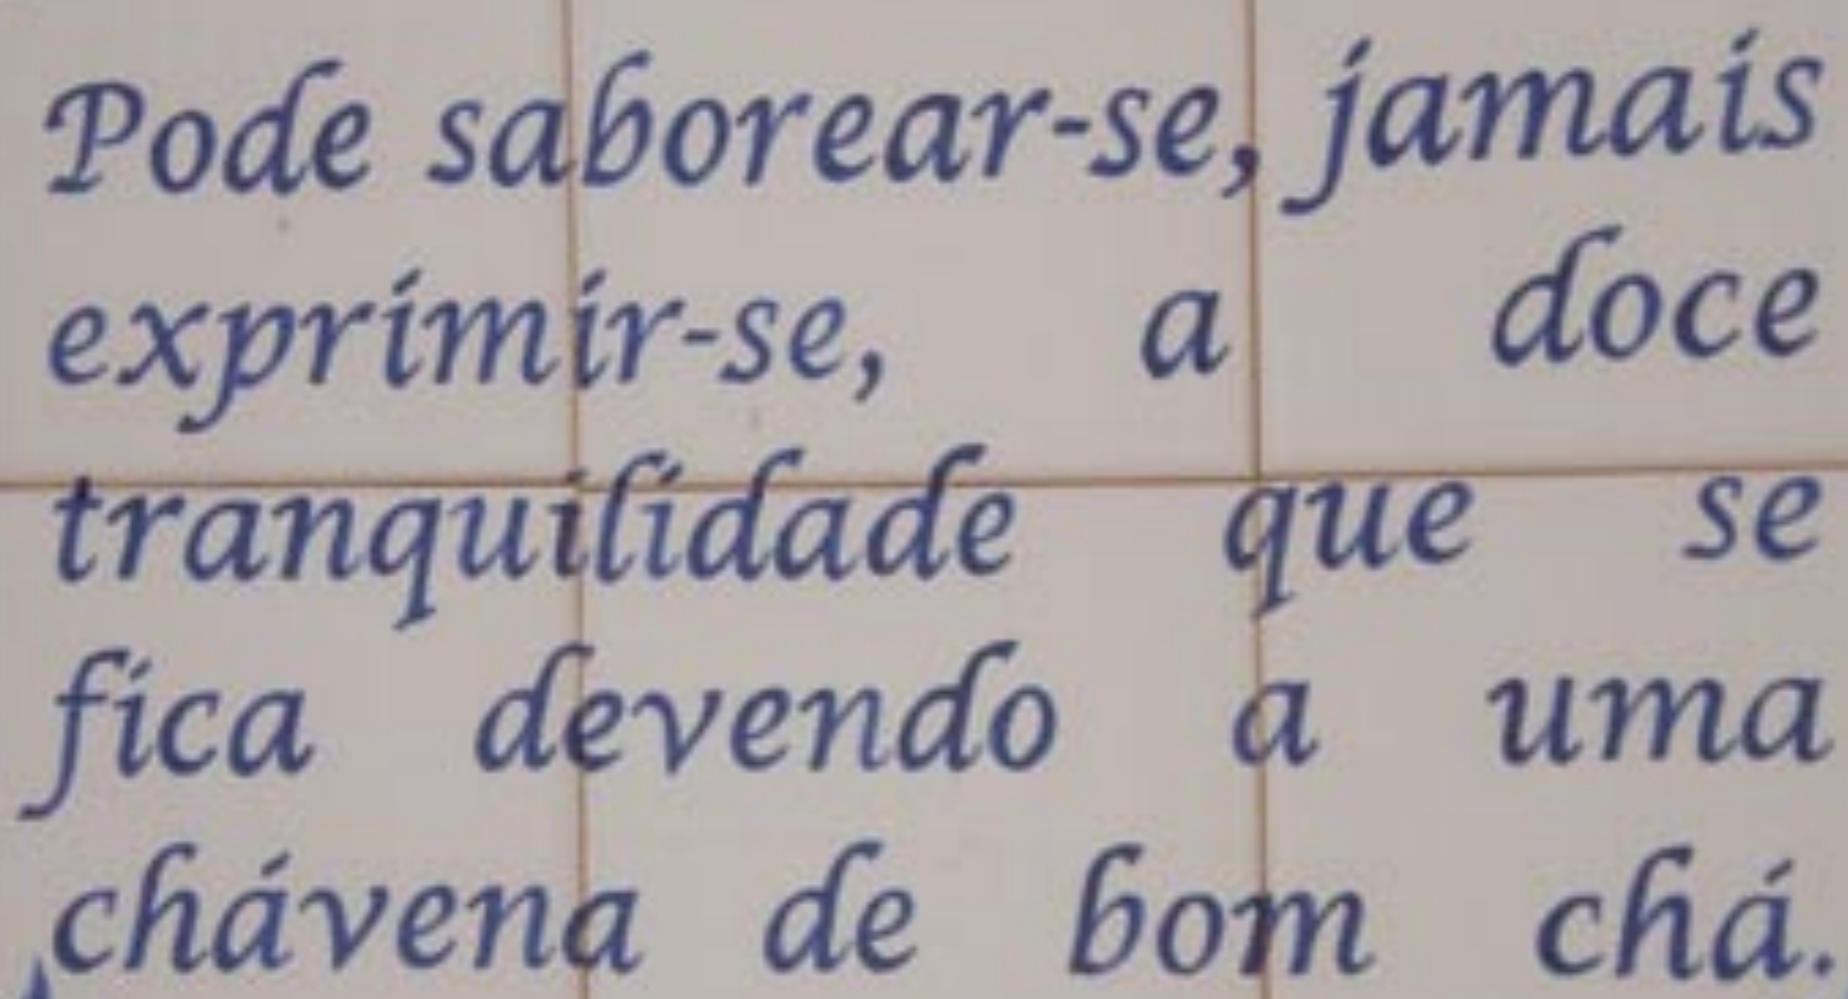 Pode saborear-se, jamais
exprimir-se, a doce
tranquilidade que se
fica devendo a uma
chávena de bom chá.